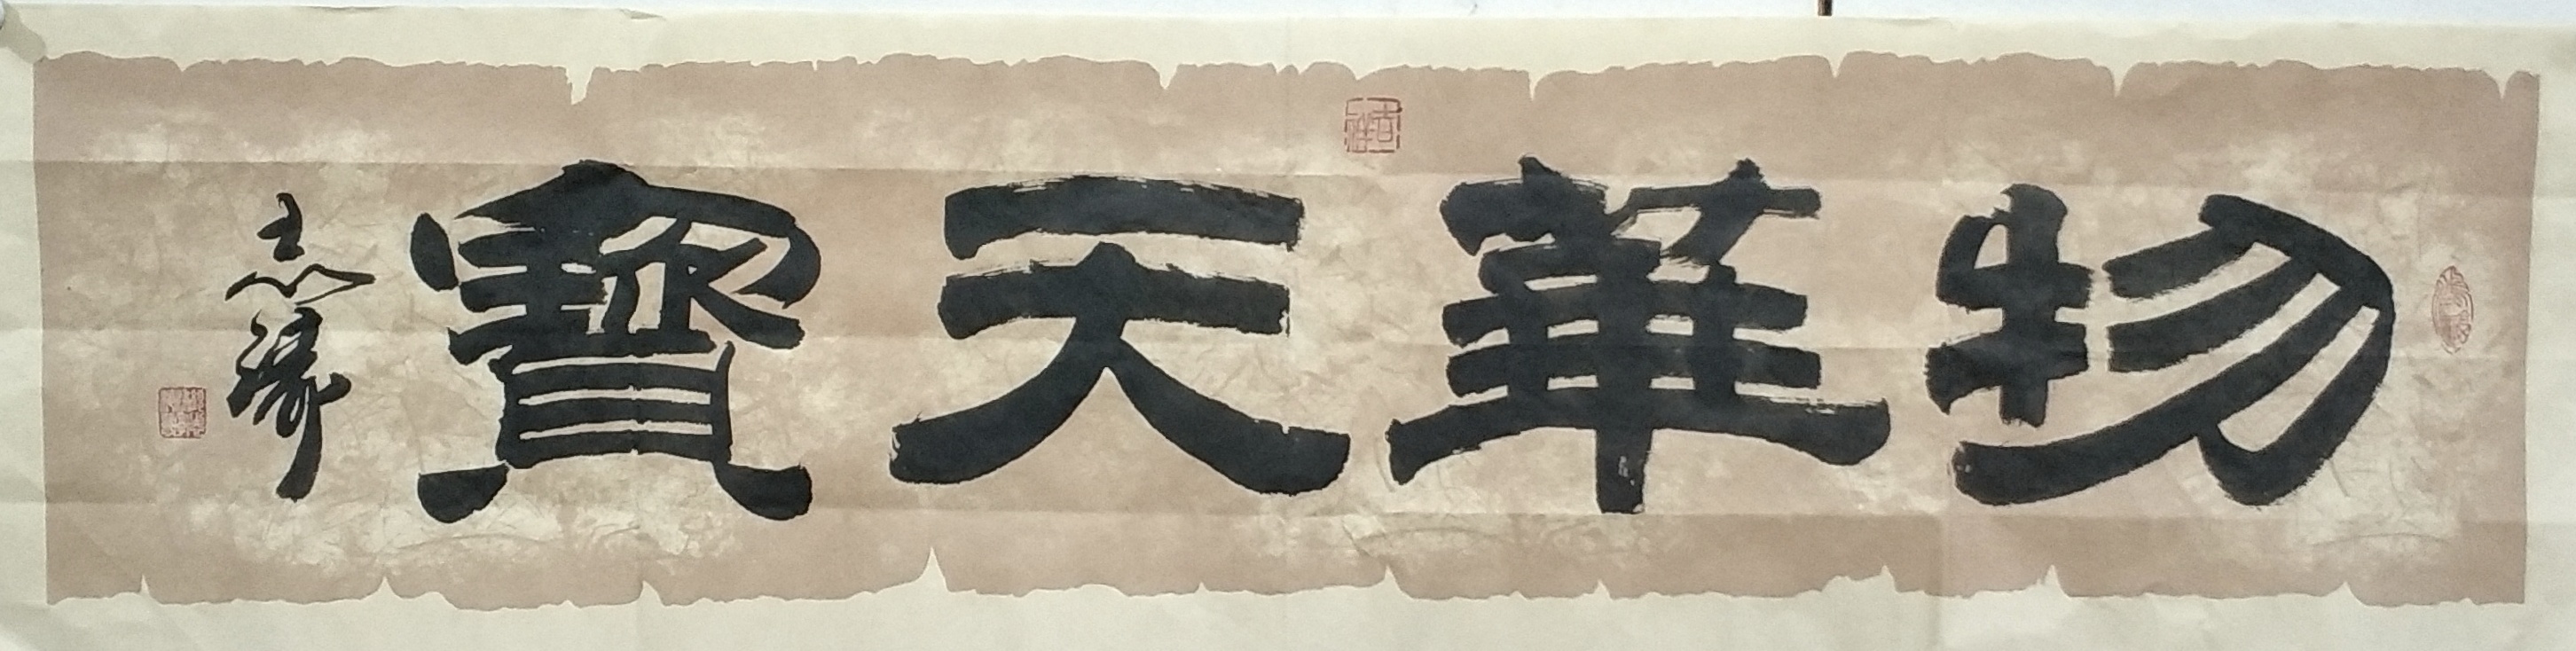 物華天寶
志緣